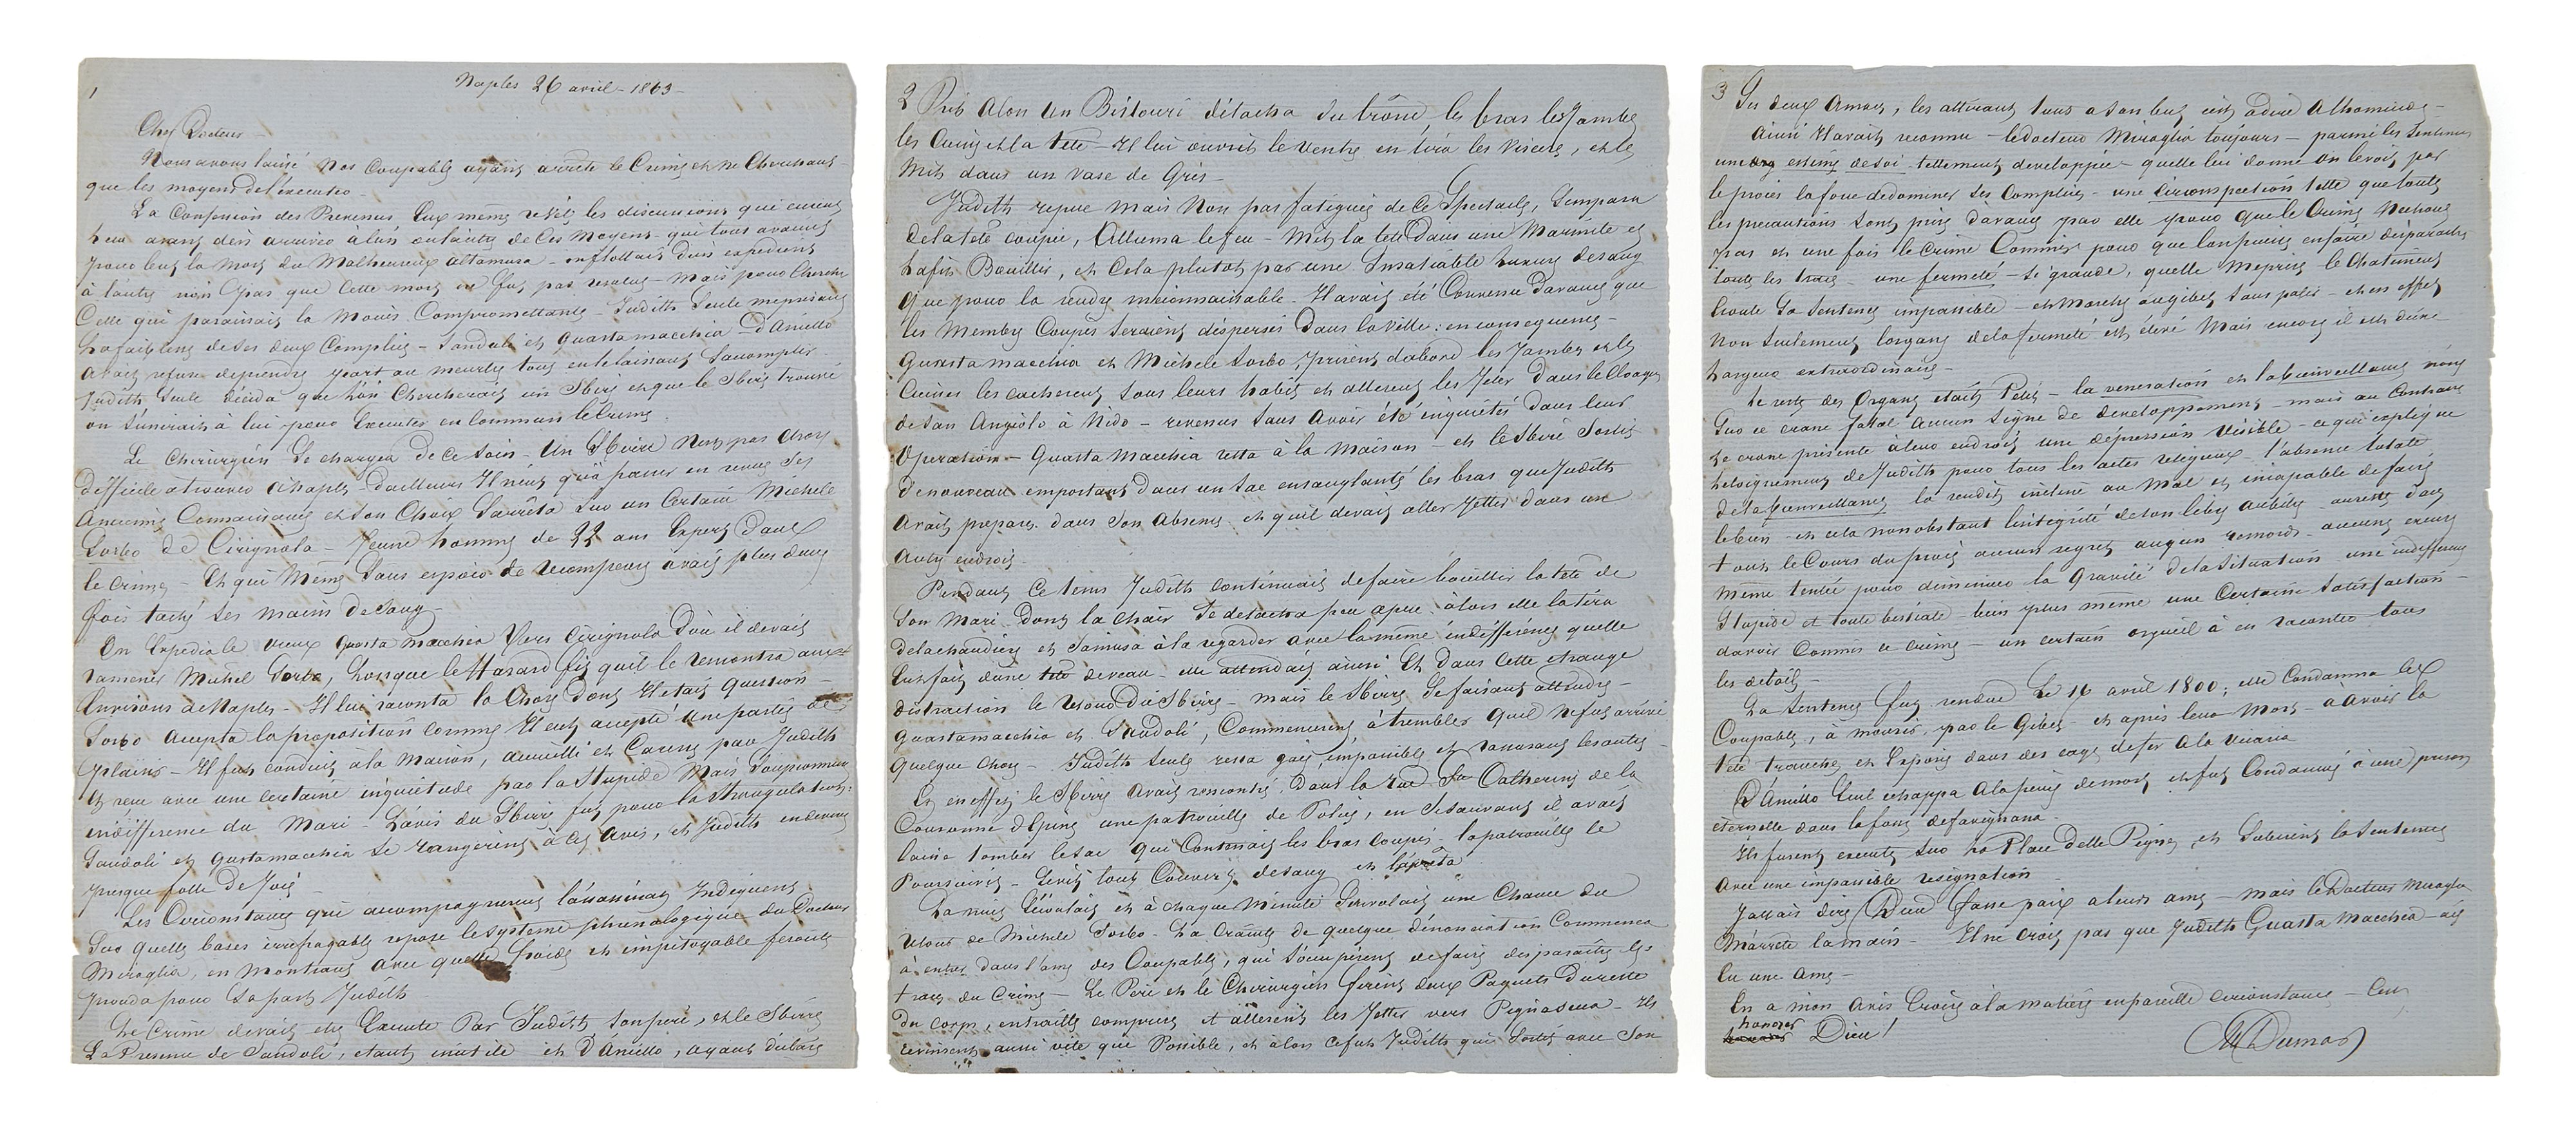 1
Naples 26 avril - 1863 -
Cher Docteur -
Nous avons laissé nos Coupables ayant arrêté le Crime et ne Cherchant -
que les moyens de l'éxecuter -
La Confession des Prevenus Eux même les discussions qui eurent
lieu avant d'en arriver à l'un ou l'autre de Ces Moyens - qui tous avaient
pour but la Mort du Malheureux Altamura - on flottait d'un expedient
à l'autre non pas que Cette mort ne fut pas resolue - Mais pour Chercher
Celle qui paraissait la Moins Compromettante - Judith Seule meprisant
la faiblesse de Ses deux Complices - Sandoli et Guastamacchia - D'Aniello
avait refusé de prendre part au meurtre tout en le laissant S'accomplir
Judith Seule décida que l'on Chercherait un Sbire et que le Sbire trouvé
on S'unirait à lui pour Executer en Commun le Crime.
Le Chirurgien Se chargea de Ce Soin - Un Sbire N'est pas Chose
difficile a trouver à Naples - D'ailleurs Il n'eut qu'à passer en revue Ses
Anciennes Connaissances et Son Choix S'arrêta Sur un Certain Michele
Sorbo de Cirignola - Jeune homme de 22 ans Expert dans
le Crime - Et qui Même Sans espoir de recompense avait plus d'une
fois taché Ses mains de Sang -
On Expedia le vieux Guasta macchia Vers Cirignola D'où il devait
ramener Michel Sorbo, Lorsque le Hasard fit qu'il le rencontra aux
Environs de Naples - Il lui raconta la Chose Dont Il était Question -
Sorbo Accepta la proposition Comme Il eut accepté Une partie de
plaisir - Il fut conduit à la Maison, accueilli et Caressé par Judith
Et reçu avec une certaine inquietude par la Stupide Mais Soupçonneuse
indifférence du Mari - L'avis du Sbire fut pour la Strangulation :
Sandoli et Guastamacchia Se rangèrent à Cet Avis, et Judith en devint
presque folle de Joie -
Les Circonstances qui accompagnerent l'assassinat Indiquent
Sur quelles bases irrefragables repose le Système phrenologique du Docteur
Miraglia, en Montrant avec quelle froide et impitoyable ferocité
proceda pour Sa part Judith -
Le Crime devait être Executé Par Judith, Son père, et le Sbire
La Presence de Sandoli, etant inutile et D'Aniello, ayant declaré
2 Prit Alors Un Bistouri détacha du trônc, les bras les Jambes
les Cuisses et la tête - Il lui ouvrit le Ventre en tira les Viscères, et les
Mit dans un Vase de Grès -
Judith repue Mais Non pas fatiguée de Ce Spectacle, S'empara
de la tête coupée, Alluma le feu - Mit la tête Dans une Marmite et
la fit Bouillir, et Cela plutot par une Insatiable luxure de Sang
que pour la rendre meconnaissable - Il avait été Convenu D'avance que
les Membres Coupés Seraient dispersés Dans la Ville : en consequence -
Guasta macchia et Michele Sorbo, prirent d'abord les Jambes et les
Cuisses les cacherent Sous leurs habits et allerent les Jeter Dans le Cloaque
de San Angiolo à Nido - revenus Sans Avoir été inquietés Dans leur
Operation - Guasta Macchia resta à la Maison - et le Sbire Sortit
De nouveau emportant Dans un Sac ensanglanté les bras que Judith
Avait preparés Dans Son Absence et qu'il devait aller Jetter Dans un
Autre endroit -
Pendant Ce tems Judith continuait de faire bouillir la tête de
Son Mari - Dont la Chair Se detacha peu apeu - alors elle la tira
de la chaudière et S'amusa à la regarder avec la même indifférence quelle
Eut fait d'une tête de veau - elle attendait ainsi Et Dans Cette etrange
distraction le retour Du Sbire - mais le Sbire Se faisant attendre -
Guastamacchia et Sandoli, Commencerent à trembler qu'il ne fut arrivé
quelque Chose - Judith Seule resta gaie impassible et rassurant les autres -
Et en effet le Sbire Avait rencontré Dans la rue Ste Catherine de la
Couronne d'Epines une patrouille de Police, en Se Sauvant il avait
laissé tomber le Sac qui Contenait les bras coupés - la patrouille le
Poursuivit - Le vit tout Couvert de Sang et l'arrêta
La nuit S'écoulait et à chaque Minute S'envolait une Chance du
retour de Michele Sorbo - La Crainte de quelque dénonciation Commença
à entrer dans l'ame des Coupables, qui S'occupèrent de faire disparaître les
traces du Crime - Le Père et le Chirurgien firent deux Paquets Du reste
Du Corps, entrailles comprises et allèrent les Jetter vers Pignaseca - Ils
revinrent aussi vite que Possible, et alors Ce fut Judith qui Sortit avec Son
3 Ses deux Amans, les attirant tous a Son but c'est adire A l'homicide -
Ainsi Il avait reconnu - le Docteur Miraglia toujours - parmi les Sentimens
une estime de Soi - tellement developpée - quelle lui donne on le voit, par
le procès la force de dominer Ses Complices - une Circonspection telle que toutes
les precautions Sont prises D'avance par elle pour que le Crime N'echoue
pas et une fois le Crime Commis pour que l'on puisse en faire disparaitre
toutes les traces - une fermeté - Si grande, quelle Meprise le Chatiment
Ecoute Sa Sentence impassible - et Marche au gibet Sans palir - et en effet
Non Seulement l'organe de la fermeté est élevé Mais encore il est d'une
largeur extraordinaire -
Le reste des Organes etait Petit - la veneration et la bienveillance n'ont
Sur ce crane fatal aucun Signe de developpement - mais au Contraire
le crane présente à leur endroit une dépression visible - ce qui explique
l'eloignement de Judith pour tous les actes religieux l'absence totale
de la bienveillance la rendit incliné au Mal et incapable de faire
le bien - et cela nonobstant l'intégrité de Son libre arbitre - aussi dans
tout le Cours du procès aucun regret aucun remords - aucune excuse
même tentée pour diminuer la Gravité de la Situation - une indifference
Stupide et toute bestiale - bien plus même une Certaine Satisfaction -
d'avoir Commis ce crime - un certain orgueil à en raconter tous
les détails -
La Sentence fut rendue Le 16 avril 1800 ; elle Condamna les
Coupables, à mourir, par le Gibet - et après leur Mort - à Avoir la
tête tranchée et Exposée dans des cages de fer à la Vicaria
D'Aniello Seul echappa à la peine de mort et fut Condamné à une prison
éternelle dans la fosse de Favignana -
Ils furent executés Sur La Place delle Pigne, et Subirent la Sentence
Avec une impassible resignation -
J'allais dire Dieu fasse paix a leurs ames - mais le Docteur Miraglia
M'arrête la main - Il ne croit pas que Judith Guasta Macchia - ait
Eu une Ame -
Et a mon Avis Croire à la matière en pareille circonstance - C'est
honorer
Dieu !
A Dumas